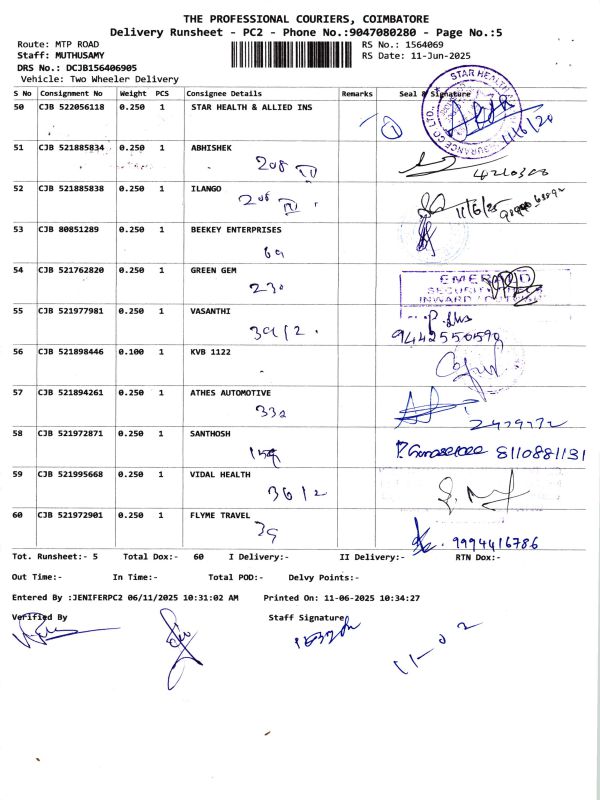 THE PROFESSIONAL COURIERS, COIMBATORE
Delivery Runsheet - PC2 - Phone No.:9047080280 - Page No.:5
Route: MTP ROAD RS No.: 1564069
Staff: MUTHUSAMY RS Date: 11-Jun-2025
DRS No.: DCJB156406905
Vehicle: Two Wheeler Delivery
S No Consignment No Weight PCS Consignee Details Remarks Seal & Signature
50 CJB 522056118 0.250 1 STAR HEALTH & ALLIED INS
STAR HEALTH
INSURANCE CO LTD.,
11/6/20
51 CJB 521885834 0.250 1 ABHISHEK
208 IV
52 CJB 521885838 0.250 1 ILANGO
206 IV 11/6/25
53 CJB 80851289 0.250 1 BEEKEY ENTERPRISES
69
54 CJB 521762820 0.250 1 GREEN GEM
230
EMERALD
SECURITY
INWARD
55 CJB 521977981 0.250 1 VASANTHI
39/2 9442550590
56 CJB 521898446 0.100 1 KVB 1122
57 CJB 521894261 0.250 1 ATHES AUTOMOTIVE
330 2479272
58 CJB 521972871 0.250 1 SANTHOSH
8110881131
59 CJB 521995668 0.250 1 VIDAL HEALTH
36/2
60 CJB 521972901 0.250 1 FLYME TRAVEL
39 9994416786
Tot. Runsheet:- 5 Total Dox:- 60 I Delivery:- II Delivery:- RTN Dox:-
Out Time:- In Time:- Total POD:- Delvy Points:-
Entered By :JENIFERPC2 06/11/2025 10:31:02 AM Printed On: 11-06-2025 10:34:27
Verified By Staff Signature
11-02